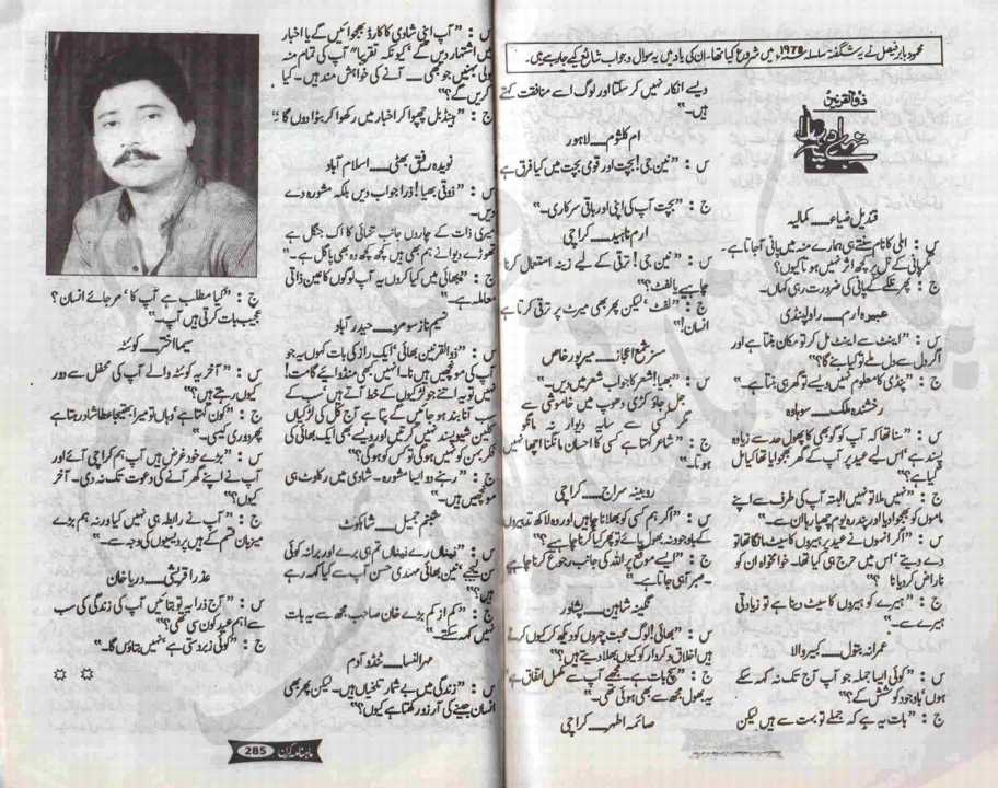 محمود بابر فیصل نے یہ شگفتہ سلسلہ ۱۹۷۵ء میں شروع کیا تھا۔ ان کی یاد میں یہ سوال و جواب شائع کیے جا رہے ہیں۔
ذوالقرنین
قندیل ضیاء — کمالیہ
س : "املی کا نام سنتے ہی ہمارے منہ میں پانی آجاتا ہے۔
مگر پانی کے نل پر کچھ اثر نہیں ہوتا کیوں؟"
ج : "پھر نلکے کے پانی کی ضرورت رہی کہاں۔
ارم — راولپنڈی
س : "اینٹ سے اینٹ مل کر تو مکان بنتا ہے اور
اگر دل سے دل ملے تو کیا بنے گا؟"
ج : "پنڈی کا معلوم نہیں ویسے تو گھر ہی بنتا ہے۔"
رخشندہ ملک — سوہاوہ
س : "سنا تھا کہ آپ کو گوبھی کا پھول حد سے زیادہ
پسند ہے اس لیے عید پر آپ کے گھر بھجوایا تھا کیا مل
گیا ہے؟"
ج : "نہیں ملا تو نہیں البتہ آپ کی طرف سے اپنے
ماموں کو بھجوا دیا اور پندرہ یوم چھپا رہا ان سے۔"
س : "اگر انہوں نے عید پر ہیروں کا سیٹ مانگا تھا تو
دے دیتے' اس میں حرج ہی کیا تھا۔ خوامخواہ ان کو
ناراض کر دیا نا؟"
ج : "ہیرے کو ہیروں کا سیٹ دینا ہے تو زیادتی
ہیرے سے۔"
عمرانہ بتول — کبیر والا
س : "کوئی ایسا جملہ جو آپ آج تک نہ کہہ سکے
ہوں' باوجود کوشش کے؟"
ج : "بات یہ ہے کہ جملے تو بہت سے ہیں لیکن
ویسے انکار نہیں کر سکتا اور لوگ اسے منافقت کہتے
ہیں۔"
ام کلثوم — لاہور
س : "نین جی! بچت اور قومی بچت میں کیا فرق ہے
ج : "بچت آپ کی اپنی اور باقی سرکاری۔"
ارم ناہید — کراچی
س : "نین جی! ترقی کے لیے زینہ استعمال کرنا
چاہیے یا لفٹ؟"
ج : "لفٹ' لیکن پھر بھی میرٹ پر ترقی کرتا ہے
انسان!"
مسز شمع اعجاز — میرپور خاص
س : "بھیا! شعر کا جواب شعر میں دیں۔"
جل جاؤ کڑی دھوپ میں خاموشی سے
مگر کسی سے سایہ دیوار نہ مانگو
ج : "شاعر کہتا ہے کسی کا احسان مانگنا اچھا نہیں
ہوتا۔"
روبینہ سراج — کراچی
س : "اگر ہم کسی کو بھلانا چاہیں اور وہ لاکھ تدبیروں
کے باوجود نہ بھول پائے تو پھر کیا کرنا چاہیے؟"
ج : "ایسے موقع پر اللہ کی جانب رجوع کرنا چاہیے
صبر آہی جاتا ہے۔"
نگینہ شاہین — پشاور
س : "بھائی! لوگ محبت چہروں کو دیکھ کر کیوں کرتے
ہیں اخلاق و کردار کو کیوں بھلا دیتے ہیں؟"
ج : "سچ بات ہے۔ مجھے آپ سے مکمل اتفاق ہے
یہ بھول مجھ سے بھی ہوئی تھی۔"
صائمہ اطہر — کراچی
س : "آپ اپنی شادی کا کارڈ بھجوائیں گے یا اخبار
میں اشتہار دیں گے' کیونکہ تقریباً آپ کی تمام منہ
بولی بہنیں جو بھی — آنے کی خواہش مند ہیں۔ کیا
کریں گے؟"
ج : "ہینڈ بل چھپوا کر اخبار میں رکھوا کر بٹوا دوں گا"
نویدہ رفیق بھٹی — اسلام آباد
س : "ذوقی بھیا! ذرا جواب دیں بلکہ مشورہ دے
دیں۔
میری ذات کے چاروں جانب تنہائی کا اک جنگل ہے
تھوڑے دیوانے ہم بھی ہیں کچھ کچھ وہ بھی پاگل ہے۔"
ج : "بھائی میں کیا کروں یہ آپ لوگوں کا عین ذاتی
معاملہ ہے۔"
شمیم ناز سومرو — حیدرآباد
س : "ذوالقرنین بھائی' ایک راز کی بات کہوں یہ جو
آپ کی مونچھیں ہیں نا۔ انہیں کبھی منڈوایئے گا مت!
نہیں تو یہ اتنے جو لڑکیوں کے خط آتے ہیں' سب کے
سب آنا بند ہو جائیں گے پتا ہے آج کل کی لڑکیاں
کلین شیو پسند نہیں کرتیں اور ویسے بھی ایک بھائی کی
فکر بہن کو نہیں ہوگی تو کس کو ہوگی؟"
ج : "رہے دو ایسا مشورہ۔ شادی میں رکاوٹ ہی
مونچھیں ہیں۔"
شبنم جمیل — شاہکوٹ
س : "نیناں رے نیناں تم ہی برے اور برا نہ کوئی
سن لیجیے' نین بھائی مہدی حسن آپ سے کیا کہہ رہے
ہیں؟"
ج : "کم از کم بڑے خان صاحب مجھ سے یہ بات
نہیں کہہ سکتے۔"
مہرالنساء — ٹنڈو آدم
س : "زندگی میں بے شمار تلخیاں ہیں۔ لیکن پھر بھی
انسان جینے کی آرزو رکھتا ہے کیوں؟"
ج : "کیا مطلب ہے آپ کا' مر جائے انسان؟
عجیب بات کرتی ہیں آپ۔"
سیما اختر — کوئٹہ
س : "آخر یہ کوئٹہ والے آپ کی محفل سے دور
کیوں رہتے ہیں؟"
ج : "کون کہتا ہے' وہاں تو میرا بھتیجا عطا شاد رہتا ہے
پھر دوری کیسی۔"
س : "بڑے خود غرض ہیں آپ ہم کراچی آئے اور
آپ نے اپنے گھر آنے کی دعوت تک نہ دی۔ آخر
کیوں؟"
ج : "آپ نے رابطہ ہی نہیں کیا ورنہ ہم بڑے
میزبان قسم کے ہیں پردیسیوں کی وجہ سے۔"
عذرا قریشی — دریا خان
س : "آج ذرا یہ تو بتائیں آپ کی زندگی کی سب
سے اہم عید کون سی تھی؟"
ج : "کوئی زبردستی ہے' نہیں بتاؤں گا۔"
ماہنامہ کرن 285